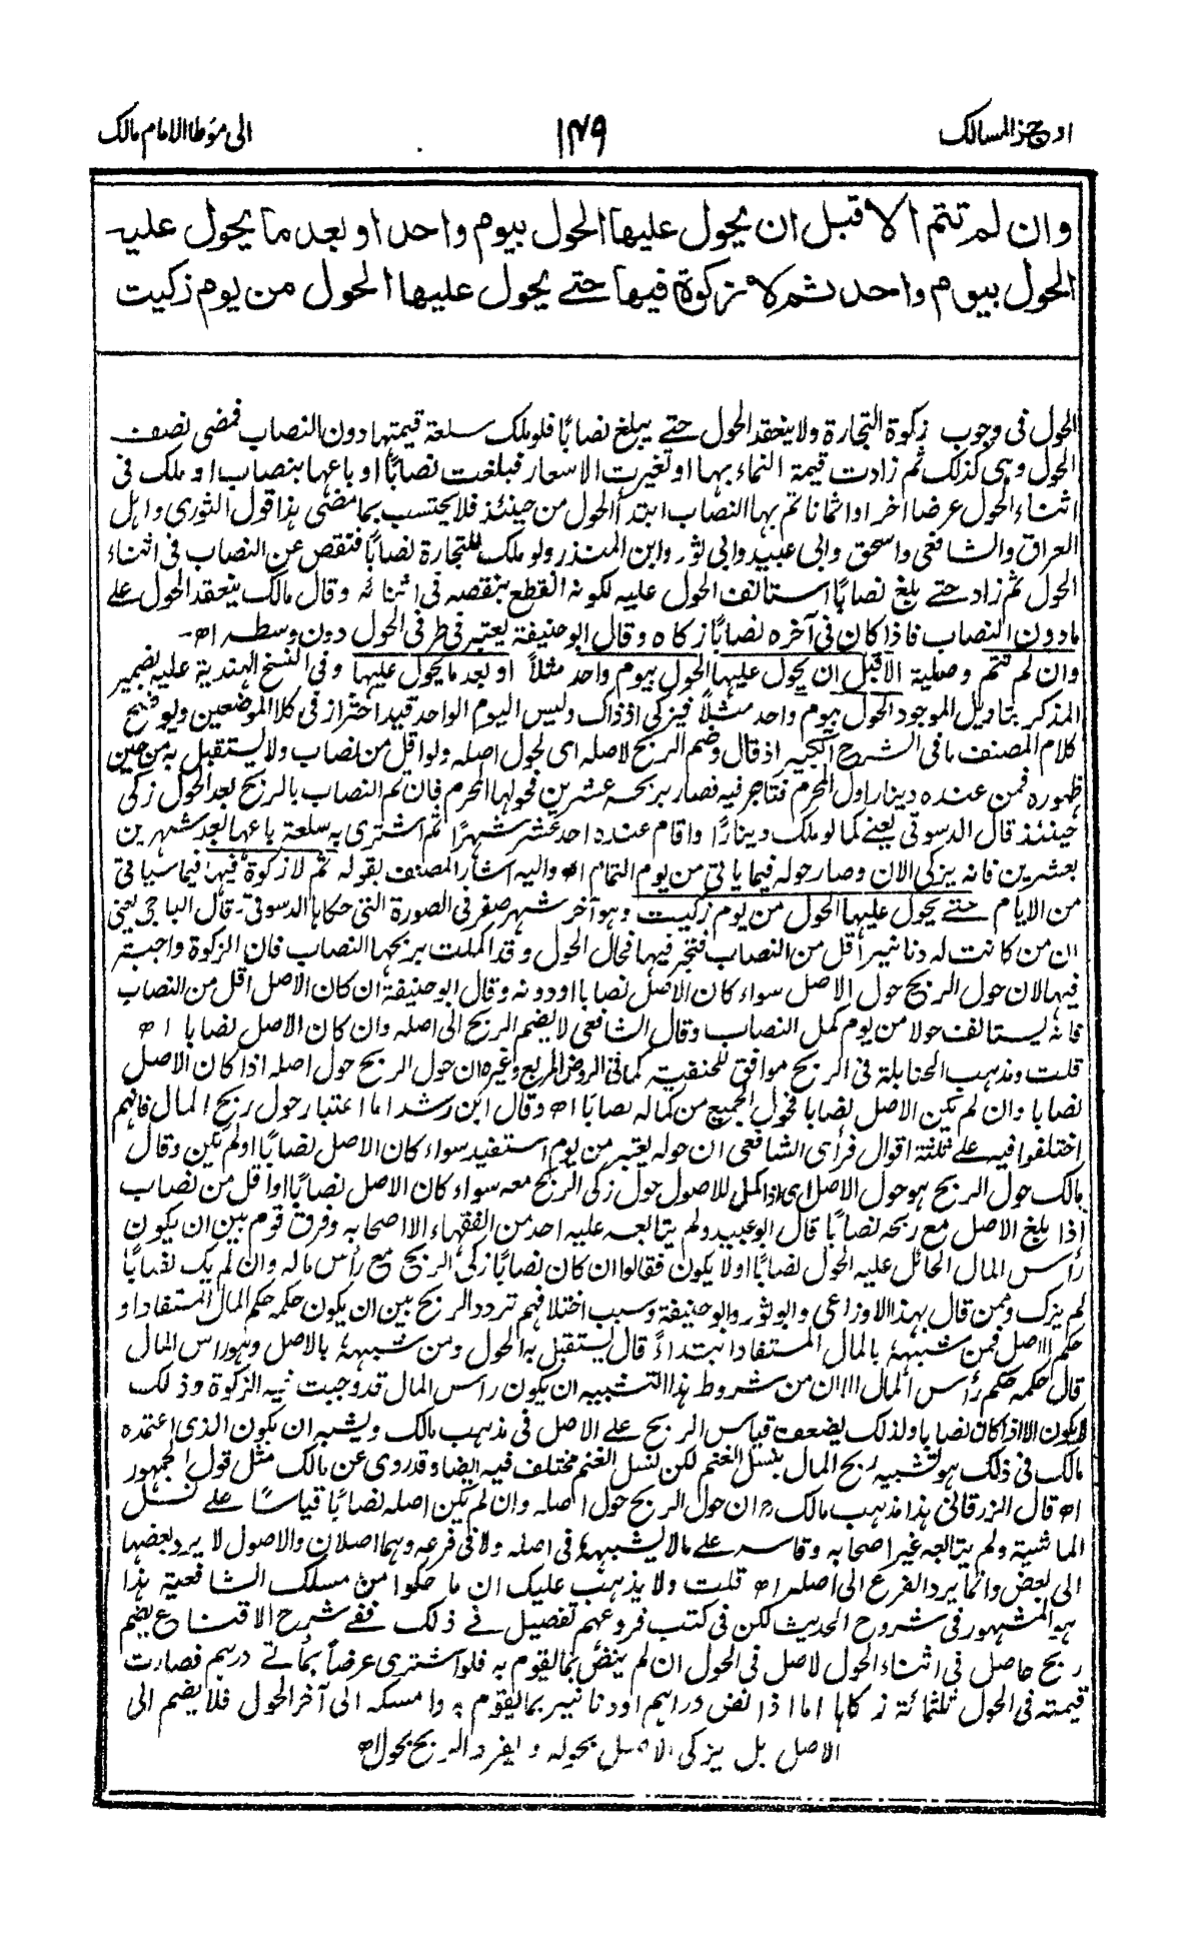 اوجز المسالك ١٤٩ الى مؤطا الامام مالك
وان لم تتم الا قبل ان يحول عليها الحول بيوم واحد او بعد ما يحول عليه
الحول بيوم واحد ثم لا زكوة فيها حتے يحول عليها الحول من يوم زكيت
الحول فى وجوب زكوة التجارة ولا ينعقد الحول حتے يبلغ نصابًا فلو ملك سلعة قيمتها دون النصاب فمضى نصف
الحول وهى كذلك ثم زادت قيمة النماء بها او تغيرت الاسعار فبلغت نصابًا او باعها بنصاب او ملك فى
اثناء الحول عرضا اخر او اثمانا تم بها النصاب ابتدأ الحول من حينئذ فلا يحتسب بما مضى هذا قول الثورى واهل
العراق والشافعى واسحق وابى عبيد وابى ثور وابن المنذر ولو ملك للتجارة نصابًا فنقص عن النصاب فى اثناء
الحول ثم زاد حتے بلغ نصابًا استانف الحول عليه لكونه انقطع بنقصه فى اثنائه وقال مالك ينعقد الحول علے
مادون النصاب فاذا كان فى آخره نصابًا زكاه وقال ابو حنيفة يعتبر فى طرفى الحول دون وسطه اھ۔
وان لم تتم وصلية الا قبل ان يحول عليها الحول بيوم واحد مثلاً او بعد ما يحول عليها وفى النسخ الهندية عليه بضمير
المذكر بتاويل الموجود الحول بيوم واحد مثلاً فيزكى اذ ذاك وليس اليوم الواحد قيد احتراز فى كلا الموضعين ويوضح
كلام المصنف ما فى الشرح الكبير اذ قال وضم الربح لاصله اى لحول اصله ولو اقل من نصاب ولا يستقبل به من حين
ظهوره فمن عنده دينار اول المحرم فتاجر فيه فصار بربحه عشرين فحولها المحرم فان تم النصاب بالربح بعد الحول زكى
حينئذ قال الدسوقى يعنے كما لو ملك دينارًا واقام عنده احد عشر شهرًا ثم اشترى به سلعة باعها بعد شهرين
بعشرين فانه يزكى الان وصار حوله فيما ياتى من يوم التمام اھ واليه اشار المصنف بقوله ثم لا زكوة فيها فيما سياتى
من الايام حتے يحول عليها الحول من يوم زكيت وهو آخر شهر صفر فى الصورة التى حكاها الدسوقى۔ قال الباجى يعنى
ان من كانت له دنانير أقل من النصاب فتجر فيها فحال الحول وقد اكملت بربحها النصاب فان الزكوة واجبة
فيها لان حول الربح حول الاصل سواء كان الاصل نصابا او دونه وقال ابو حنيفة ان كان الاصل اقل من النصاب
فانه يستانف حولا من يوم كمل النصاب وقال الشافعى لا يضم الربح الى اصله وان كان الاصل نصابا اھ
قلت ومذهب الحنابلة فى الربح موافق للحنفية كما فى الروض المربع وغيره ان حول الربح حول اصله اذا كان الاصل
نصابا وان لم يكن الاصل نصابا فحول الجميع من كماله نصابًا اھ وقال ابن رشد اما اعتبار حول ربح المال فانهم
اختلفوا فيه علے ثلثة اقوال فرأى الشافعى ان حوله يعتبر من يوم استفيد سواء كان الاصل نصابًا او لم يكن وقال
مالك حول الربح هو حول الاصل اى اذا كمل للاصول حول زكى الربح معه سواء كان الاصل نصابًا او اقل من نصاب
اذا بلغ الاصل مع ربحه نصابًا قال ابو عبيد ولم يتابعه عليه احد من الفقهاء الا اصحابه وفرق قوم بين ان يكون
رأس المال الحائل عليه الحول نصابًا او لا يكون فقالوا ان كان نصابًا زكى الربح مع رأس ماله وان لم يك نصابًا
لم يزك وممن قال بهذا الاوزاعى وابو ثور وابو حنيفة وسبب اختلافهم تردد الربح بين ان يكون حكمه حكم المال المستفاد او
حكم الاصل فمن شبهه بالمال المستفاد ابتداءً قال يستقبل به الحول ومن شبهه بالاصل وهو راس المال
قال حكمه حكم رأس المال الا ان من شروط هذا التشبيه ان يكون راس المال قد وجبت فيه الزكوة وذلك
لا يكون الا اذا كان نصابا ولذلك يضعف قياس الربح علے الاصل فى مذهب مالك ويشبه ان يكون الذى اعتمده
مالك فى ذلك هو تشبيه ربح المال بنسل الغنم لكن نسل الغنم مختلف فيه ايضا وقد روى عن مالك مثل قول الجمهور
اھ قال الزرقانى هذا مذهب مالك ان حول الربح حول اصله وان لم يكن اصله نصابًا قياسًا علے نسل
الماشية ولم يتابعه غير اصحابه وقاسه علے ما لا يشبهه فى اصله ولا فى فرعه وهما اصلان والاصول لا يرد بعضها
الى بعض وانما يرد الفرع الى اصله اھ قلت ولا يذهب عليك ان ما حكوا من مسلك الشافعية هذا
هو المشهور فى شروح الحديث لكن فى كتب فروعهم تفصيل فے ذلك ففے شرح الاقناع يضم
ربح حاصل فى اثناء الحول لاصل فى الحول ان لم ينض بما يقوم به فلو اشترى عرضاً بمائے درهم فصارت
قيمته فى الحول ثلثمائة زكاها اما اذا نض دراهم او دنانير بما يقوم به وامسكه الى آخر الحول فلا يضم الى
الاصل بل يزكى الاصل بحوله ويفرد الربح بحول اھ